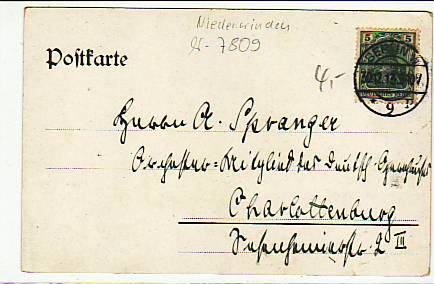 Niederwinden
7809
4,-
Postkarte
5 5
BERLIN
9
Herrn A. Spranger
Orchester=Mitglied des Deutsch.
Charlottenburg
Sesenheimerstr. 2 III